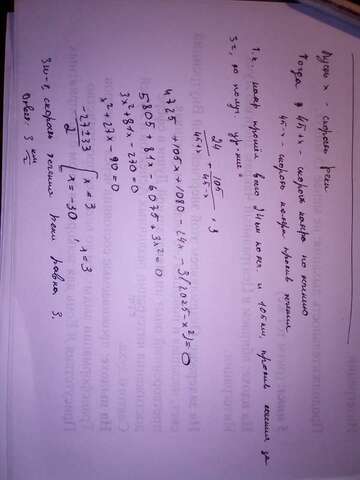 Пусть x - скорость реки
Тогда 45+x - скорость катера по течению
45-x - скорость катера против течения
Т.к. катер прошёл всего 24 км по теч. и 105 км, против течения за
3 ч, то получ. ур-ние:
24/45+x + 105/45-x = 3
4725 + 105x + 1080 - 24x - 3(2025 - x²) = 0
5805 + 81x - 6075 + 3x² = 0
3x² + 81x - 270 = 0
x² + 27x - 90 = 0
x = 3
x = -30
x = 3
скорость течения реки равна 3.
Ответ: 3 км/ч